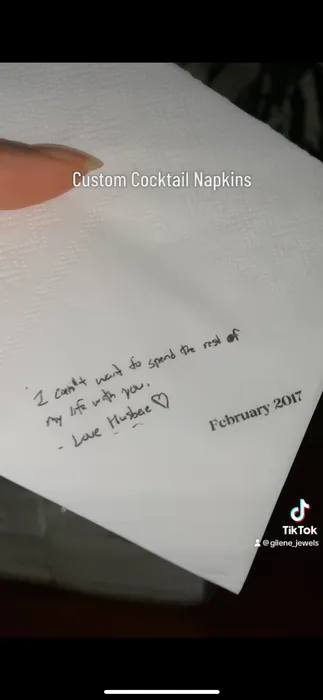 Custom Cocktail Napkins
"I can't wait to spend the rest of
my life with you.
- Love Husbae ♡
February 2017
TikTok
@gilene_jewels